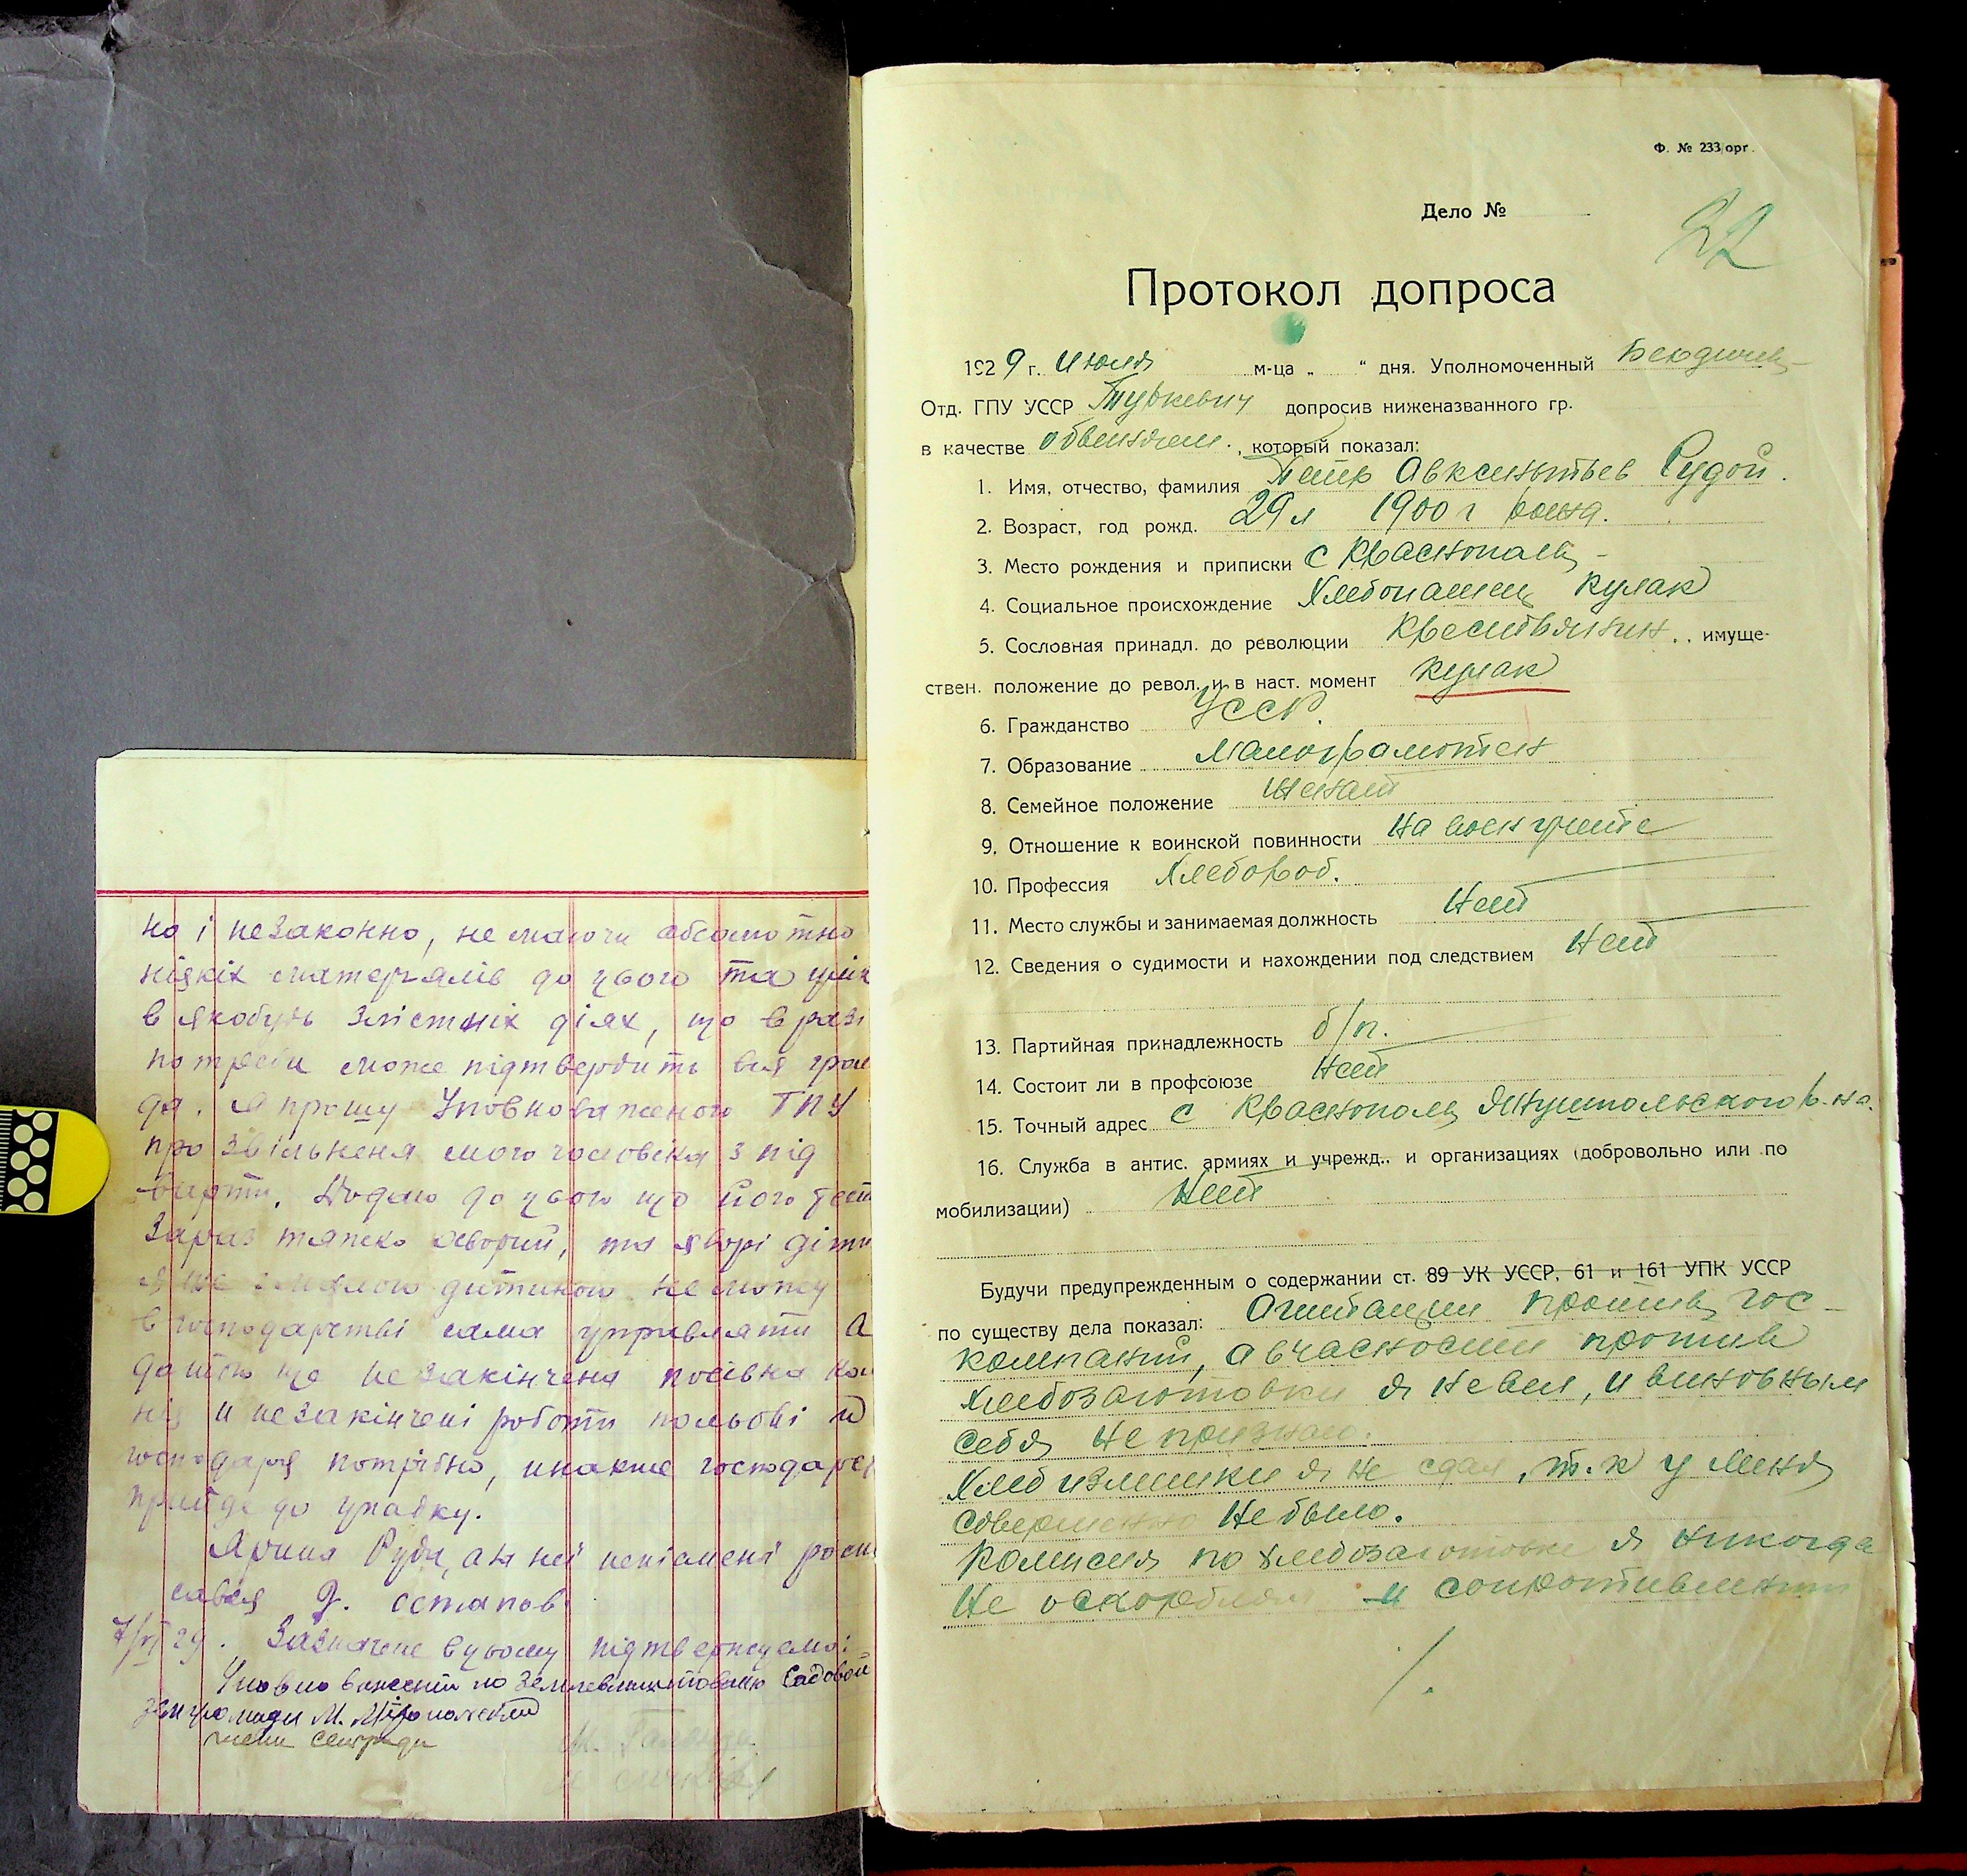 но і незаконно, не маючи абсолютно
ніякіх матерьялів до цього та улік
в якобудь злістних діях, що в разі
потреби може підтвердить вся грома
да. Я прошу Уповноваженого ГПУ
про звільненя мого чоловіка з під
варти. Додаю до цього що його
Зараз тяжко хворий, та хворі діти
я же з малою дитиною не можу
в господарстві сама управляти а
ще незакінчена посівка
й незакінчені роботи польові
господаря потрібно, инакше господарст
прийде до упадку.
Ярина Руда, а за неї неписмені роспи
сався Остапов
7/VI 29. Зазначене в цьому підтвержуємо:
Уповноважений по Землевпоштованю Садовой
земгромади М.
член сельради
Ф. № 233/орг.
Дело №
22
Протокол допроса
1929 г. Июля м-ца „ “ дня. Уполномоченный Бердичев-
Отд. ГПУ УССР Туркевич допросив ниженазванного гр.
в качестве обвиняем., который показал:
1. Имя, отчество, фамилия Петр Авксентьев Рудой.
2. Возраст, год рожд. 29 л 1900 г рожд.
3. Место рождения и приписки с Краснополь
4. Социальное происхождение Хлебопашец кулак
5. Сословная принадл. до революции Крестьянин., имуще-
ствен. положение до револ. и в наст. момент кулак
6. Гражданство УССР.
7. Образование Малограмотен
8. Семейное положение женат
9. Отношение к воинской повинности На воен учете
10. Профессия Хлебороб.
11. Место службы и занимаемая должность Нет
12. Сведения о судимости и нахождении под следствием Нет
13. Партийная принадлежность б/п.
14. Состоит ли в профсоюзе Нет
15. Точный адрес с Краснополь Янушпольского р-на.
16. Служба в антис. армиях и учрежд., и организациях (добровольно или по
мобилизации) Нет
Будучи предупрежденным о содержании ст. 89 УК УССР, 61 и 161 УПК УССР
по существу дела показал: Агитации против гос-
компаний, а в часности против
хлебозаготовки я не вел, и виновным
себя не признаю.
Хлеб излишки я не сдал, т.к у меня
совершенно не было.
Комисия по хлебозаготовке я никогда
не оскорблял и сопротивления
/.